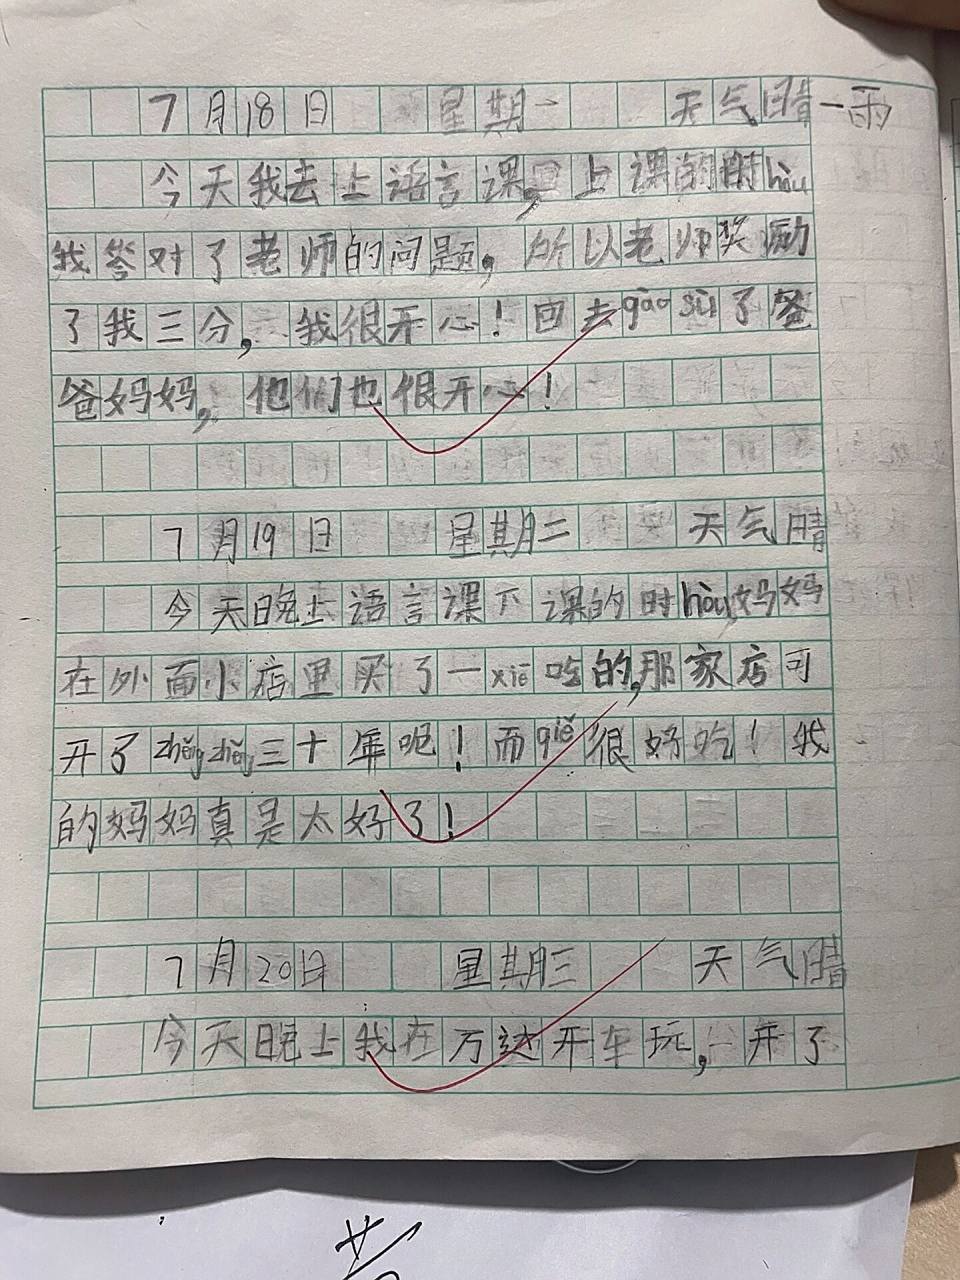 7月18日 星期一 天气晴一雨
今天我去上语言课,上课的时hòu
我答对了老师的问题,所以老师奖励
了我三分,我很开心!回去gào sù了爸
爸妈妈,他们也很开心!
7月19日 星期二 天气晴
今天晚上语言课下课的时hòu妈妈
在外面小店里买了一xiē吃的,那家店可
开了zhěng zhěng三十年呢!而qiě很好吃!我
的妈妈真是太好了!
7月20日 星期三 天气晴
今天晚上我在万达开车玩,开了